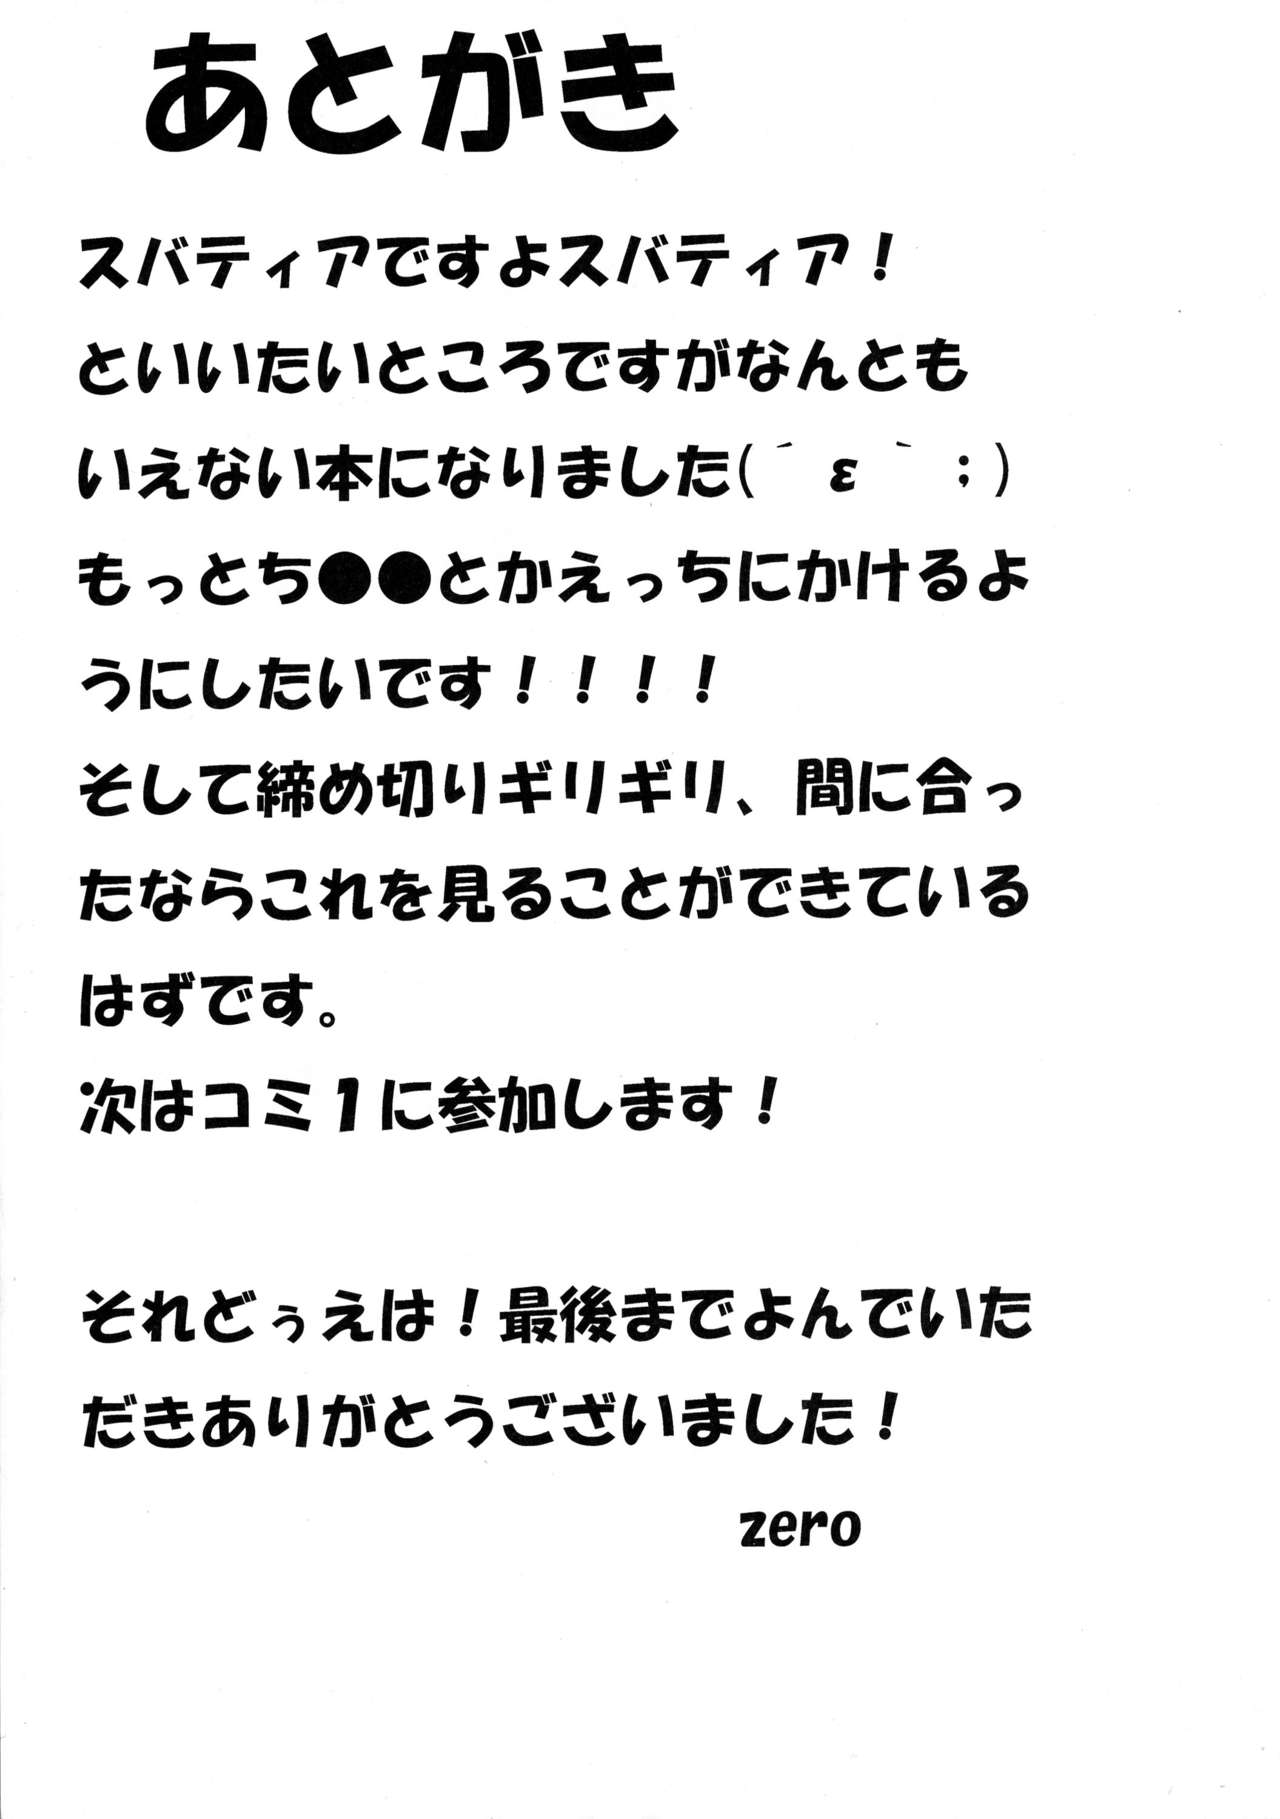 あとがき
スバティアですよスバティア！
といいたいところですがなんとも
いえない本になりました(´ε｀；)
もっとち●●とかえっちにかけるよ
うにしたいです！！！！
そして締め切りギリギリ、間に合っ
たならこれを見ることができている
はずです。
次はコミ１に参加します！
それどぅえは！最後までよんでいた
だきありがとうございました！
zero